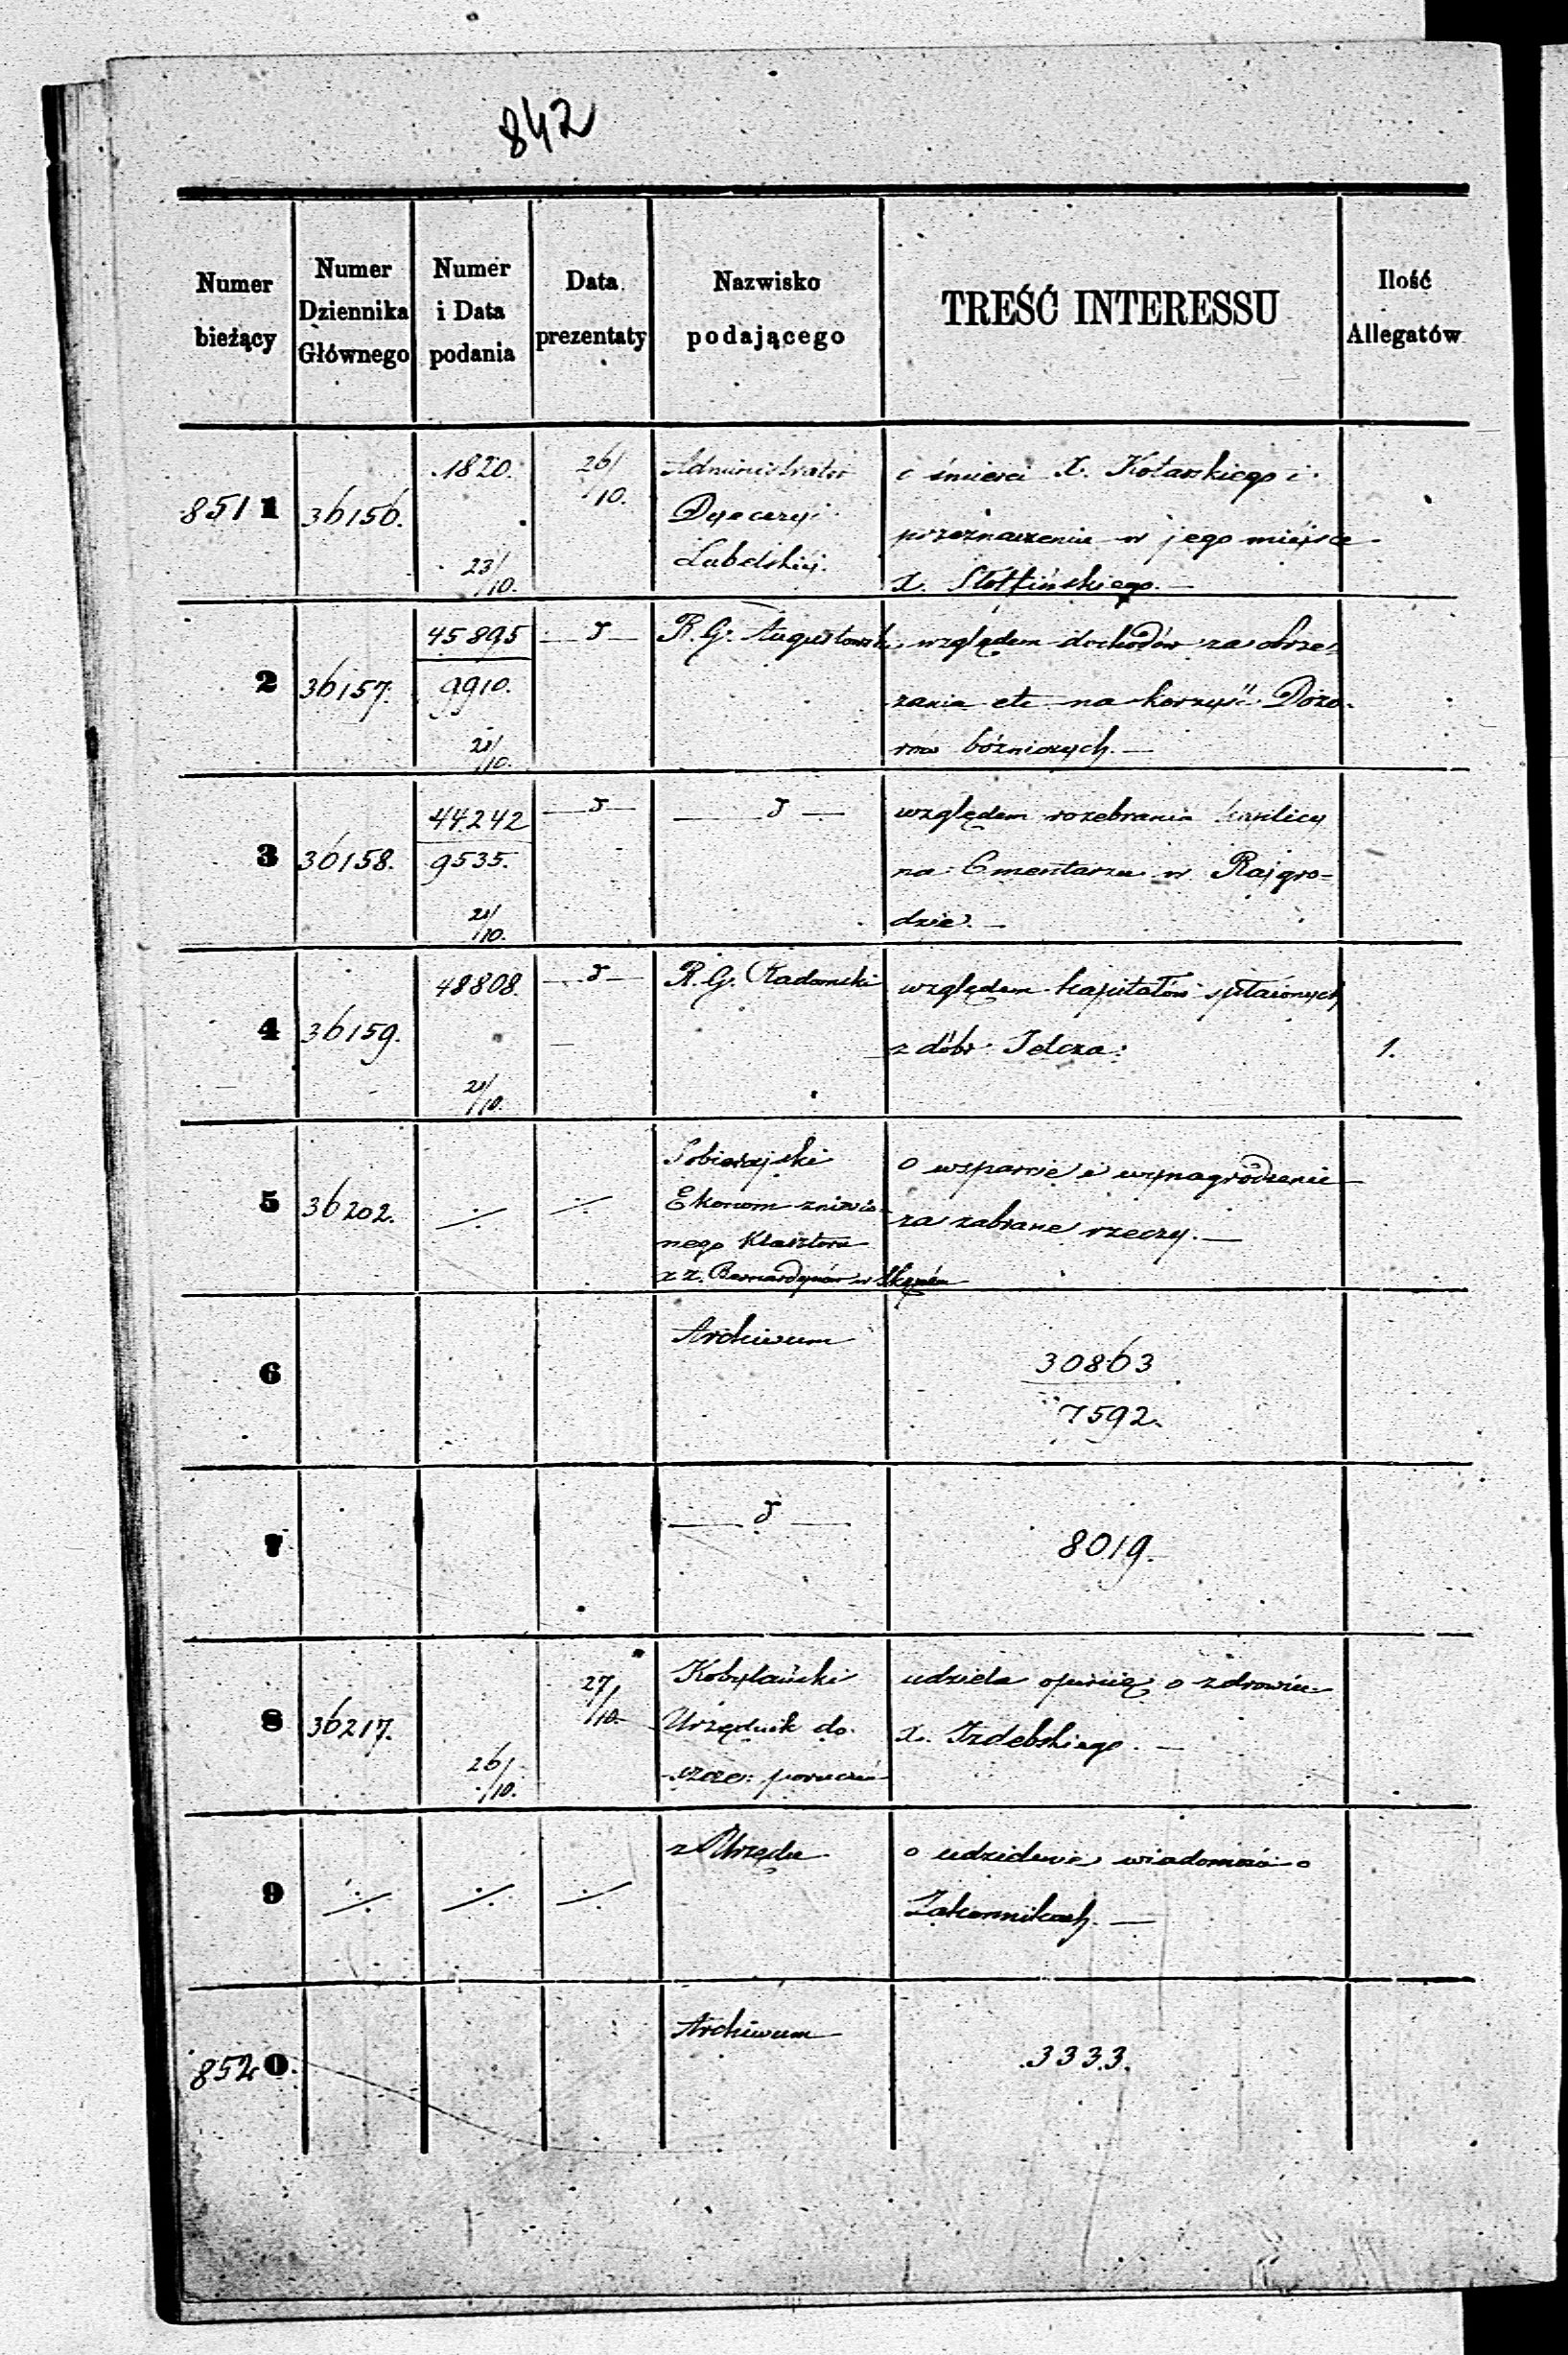 842
Numer bieżący
Numer Dziennika Głównego
Numer i Data podania
Data prezentaty
Nazwisko podającego
TREŚĆ INTERESSU
Ilość Allegatów
8511 36156. 1820. 23/10. 26/10.
Administrator
Dyecezyi
Lubelskiéj.
o śmierci X. Kotarskiego i
przeznaczeniu w jego miejsce
X.
2 36157. 45895 9910. 21/10.
R. G. Augustowski
względem dochodów za obrze=
zania etc na korzyść Dozo=
rów bóżniczych. —
3 36158. 44242 9535. 21/10.
względem rozebrania kaplicy
na Cmentarzu w Rajgro=
dzie. —
4 36159. 48808. 21/10.
R. G. Radomski
względem kapitałów spłaconych
z dóbr Jelcza.
1.
5 36202. ÷ ÷
Sobierajski
Ekonom zniesio=
nego Klasztoru
xx. Bernardynów w Skępém
o wsparcie i wynagrodzenie
za zabrane rzeczy. —
6
Archiwum
30863
7592.
7
8019.
8 36217. 26/10. 27/10.
Kobylański
Urzędnik do
szcze: poruczeń
udziela opinię o zdrowiu
X. Izdebskiego. —
9 ÷ ÷ ÷
z Urzędu
o udzielenie wiadomości o
Zakonnikach. —
8520.
Archiwum
3333.